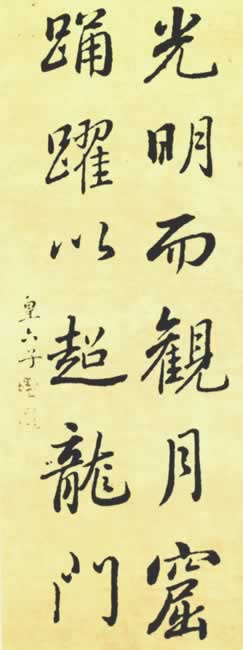 光明而觀月窟
踴躍以超龍門
皇六子